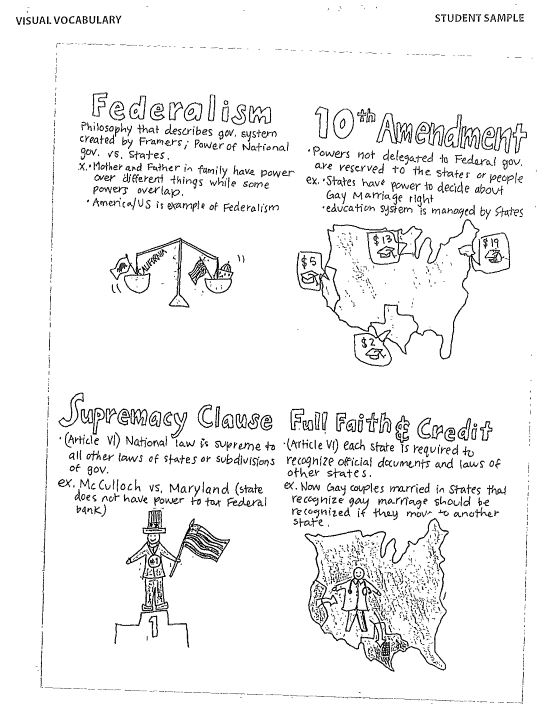 VISUAL VOCABULARY
STUDENT SAMPLE
Federalism
Philosophy that describes gov. system
created by Framers; Power of National
gov. vs. States.
X. • Mother and Father in family have power
over different things while some
powers overlap.
• America/US is example of Federalism
CALIFORNIA
10th Amendment
• Powers not delegated to Federal gov.
are reserved to the states or people
ex. • States have power to decide about
Gay Marriage right
• education system is managed by States
$13
$19
$5
$2
Supremacy Clause
• (Article VI) National law is supreme to
all other laws of states or subdivisions
of gov.
ex. McCulloch vs. Maryland (state
does not have power to tax Federal
bank)
#1
1
Full Faith & Credit
• (Article VI) each state is required to
recognize official documents and laws of
other states.
ex. Now Gay couples married in States that
recognize gay marriage should be
recognized if they move to another
state.